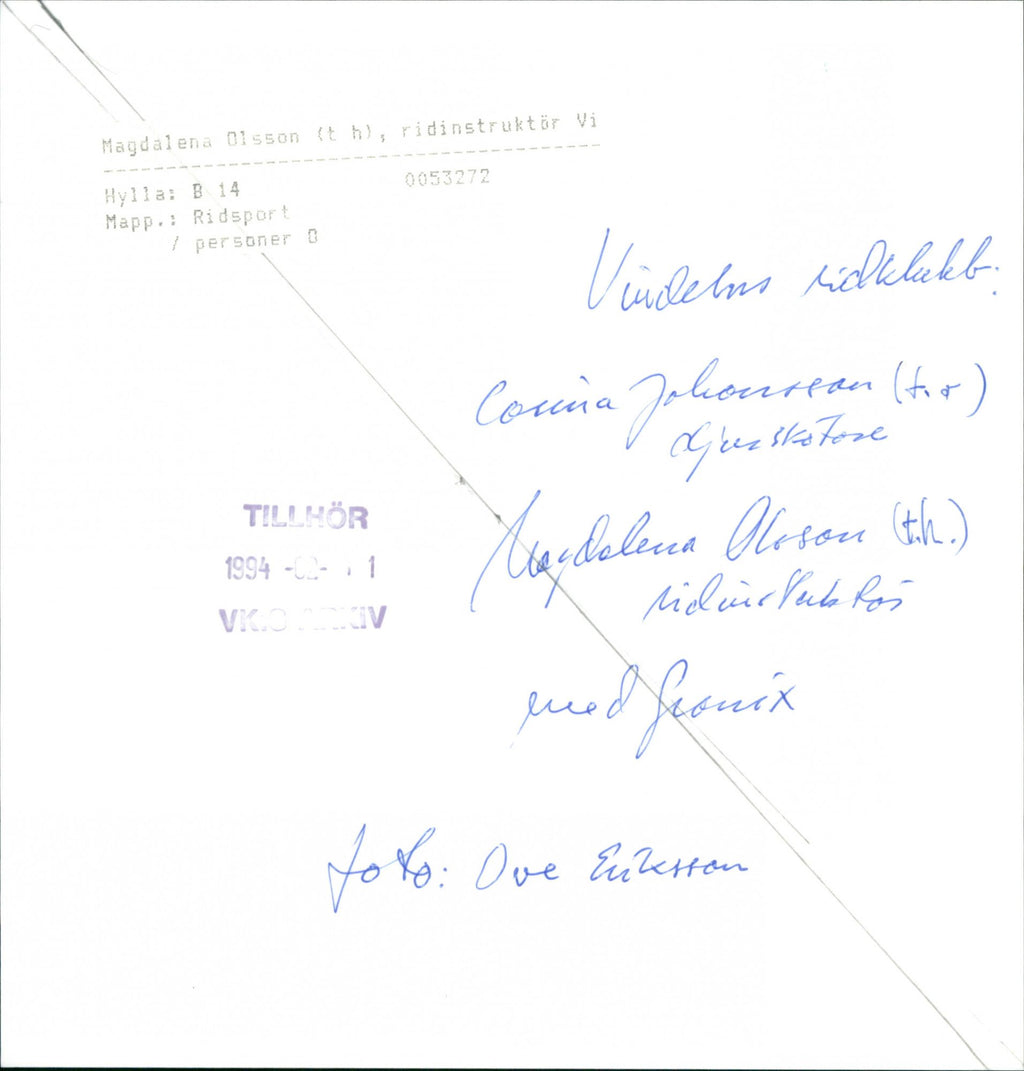 Magdalena Olsson (t h), ridinstruktör Vi
Hylla: B 14 0053272
Mapp.: Ridsport
/ personer O
Vindelns ridklubb:
Johansson (t.v)
djurskötare
TILLHÖR
1994 -02- 1
VK:S ARKIV
Magdalena Olsson (t.h.)
ridinstruktör
med
foto: Ove Eriksson